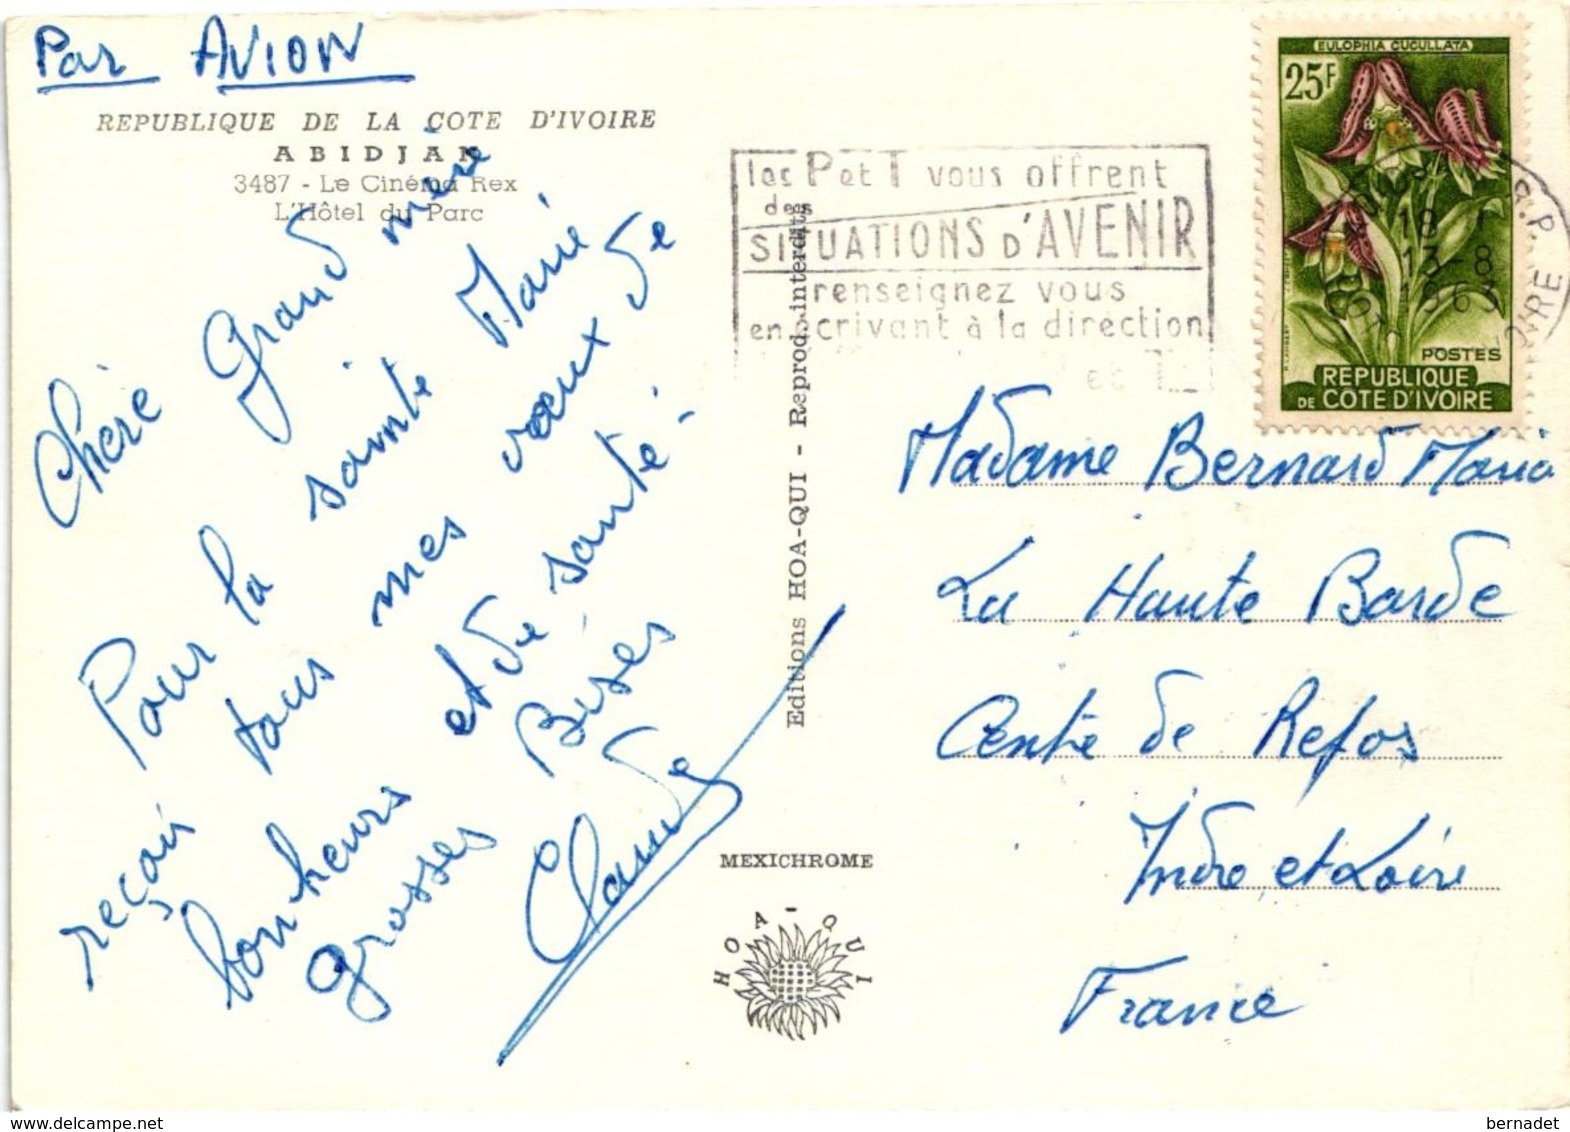 Par AVION
REPUBLIQUE DE LA COTE D'IVOIRE
ABIDJAN
3487 - Le Cinéma Rex
L'Hôtel du Parc
Chère Grand mère
Pour la sainte Marie
reçois tous mes vœux de
bonheurs et de santé.
grosses Bises
Claude
Editions HOA-QUI - Reprod. interdite
MEXICHROME
HOA-QUI
les P et T vous offrent
des
SITUATIONS D'AVENIR
renseignez vous
en crivant à la direction
et T
EULOPHIA CUCULLATA
25F
POSTES
REPUBLIQUE
DE COTE D'IVOIRE
R.P.
18
13-8
1963
Madame Bernard Maria
La Haute Barde
Centre de Repos
Indre et Loire
France
delcampe.net
bernadet